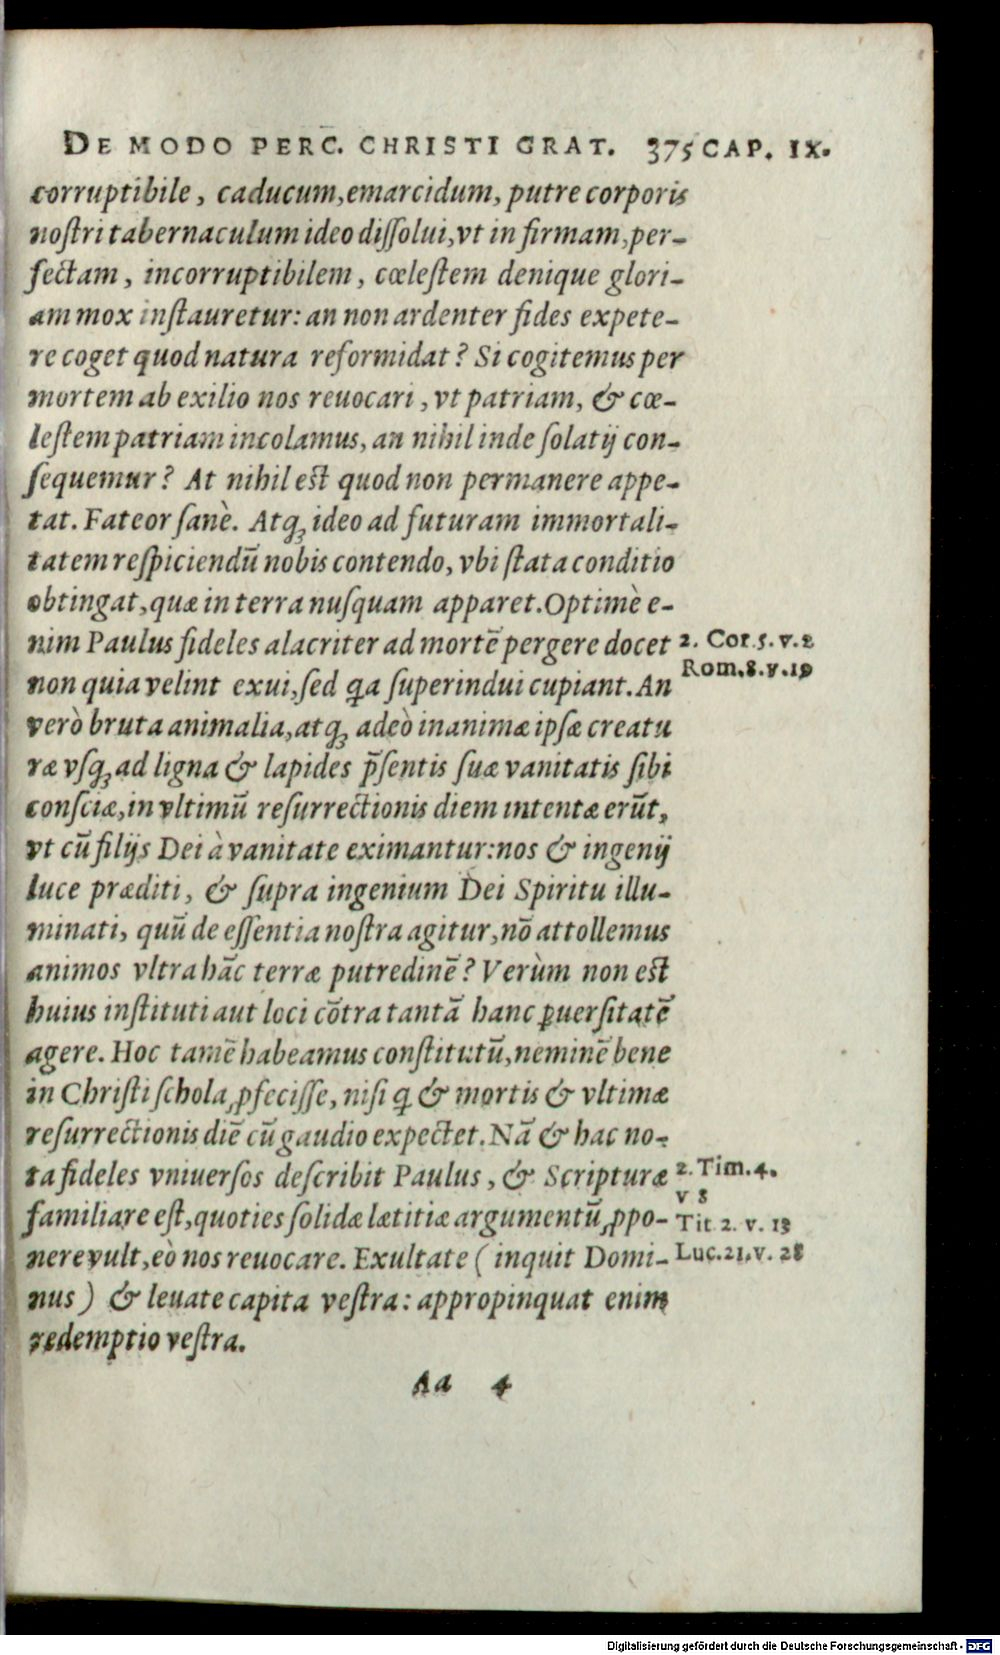 DE MODO PERC. CHRISTI GRAT. 375 CAP. IX.
corruptibile, caducum, emarcidum, putre corporis
noſtri tabernaculum ideo diſſolui, vt in firmam, per-
fectam, incorruptibilem, cœleſtem denique glori-
am mox inſtauretur: an non ardenter fides expete-
re coget quod natura reformidat? Si cogitemus per
mortem ab exilio nos reuocari, vt patriam, & cœ-
leſtem patriam incolamus, an nihil inde ſolatij con-
ſequemur? At nihil eſt quod non permanere appe-
tat. Fateor ſanè. Atq; ideo ad futuram immortali-
tatem reſpiciendū nobis contendo, vbi ſtata conditio
obtingat, quæ in terra nuſquam apparet. Optimè e-
nim Paulus fideles alacriter ad mortē pergere docet
2. Cor. 5. v. 2
Rom. 8. v. 19
non quia velint exui, ſed qa ſuperindui cupiant. An
verò bruta animalia, atq; adeò inanimæ ipſæ creatu
ræ vſq; ad ligna & lapides p̄ſentis ſuæ vanitatis ſibi
conſciæ, in vltimū reſurrectionis diem intentæ erūt,
vt cū filijs Dei à vanitate eximantur: nos & ingenij
luce præditi, & ſupra ingenium Dei Spiritu illu-
minati, quū de eſſentia noſtra agitur, nō attollemus
animos vltra hāc terræ putredinē? Verùm non eſt
huius inſtituti aut loci cōtra tantā hanc ꝑuerſitatē
agere. Hoc tamē habeamus conſtitutū, neminē bene
in Chriſti ſchola ꝓfeciſſe, niſi q & mortis & vltimæ
reſurrectionis diē cū gaudio expectet. Nā & hac no-
ta fideles vniuerſos deſcribit Paulus, & Scripturæ
2. Tim. 4.
v 8
familiare eſt, quoties ſolidæ lætitiæ argumentū ꝓpo-
Tit 2. v. 13
nere vult, eò nos reuocare. Exultate (inquit Domi-
Luc. 21. v. 28
nus) & leuate capita veſtra: appropinquat enim
redemptio veſtra.
Aa 4
Digitalisierung gefördert durch die Deutsche Forschungsgemeinschaft - DFG